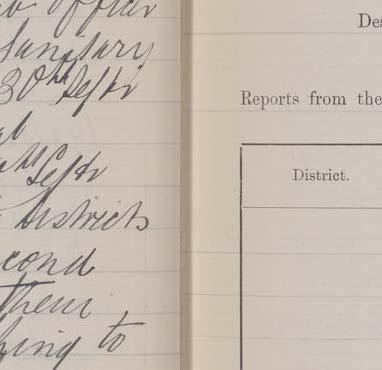 officer
Sanitary
30th Septr
Septr
Districts
cond
them
hing to
Des
Reports from the
District.